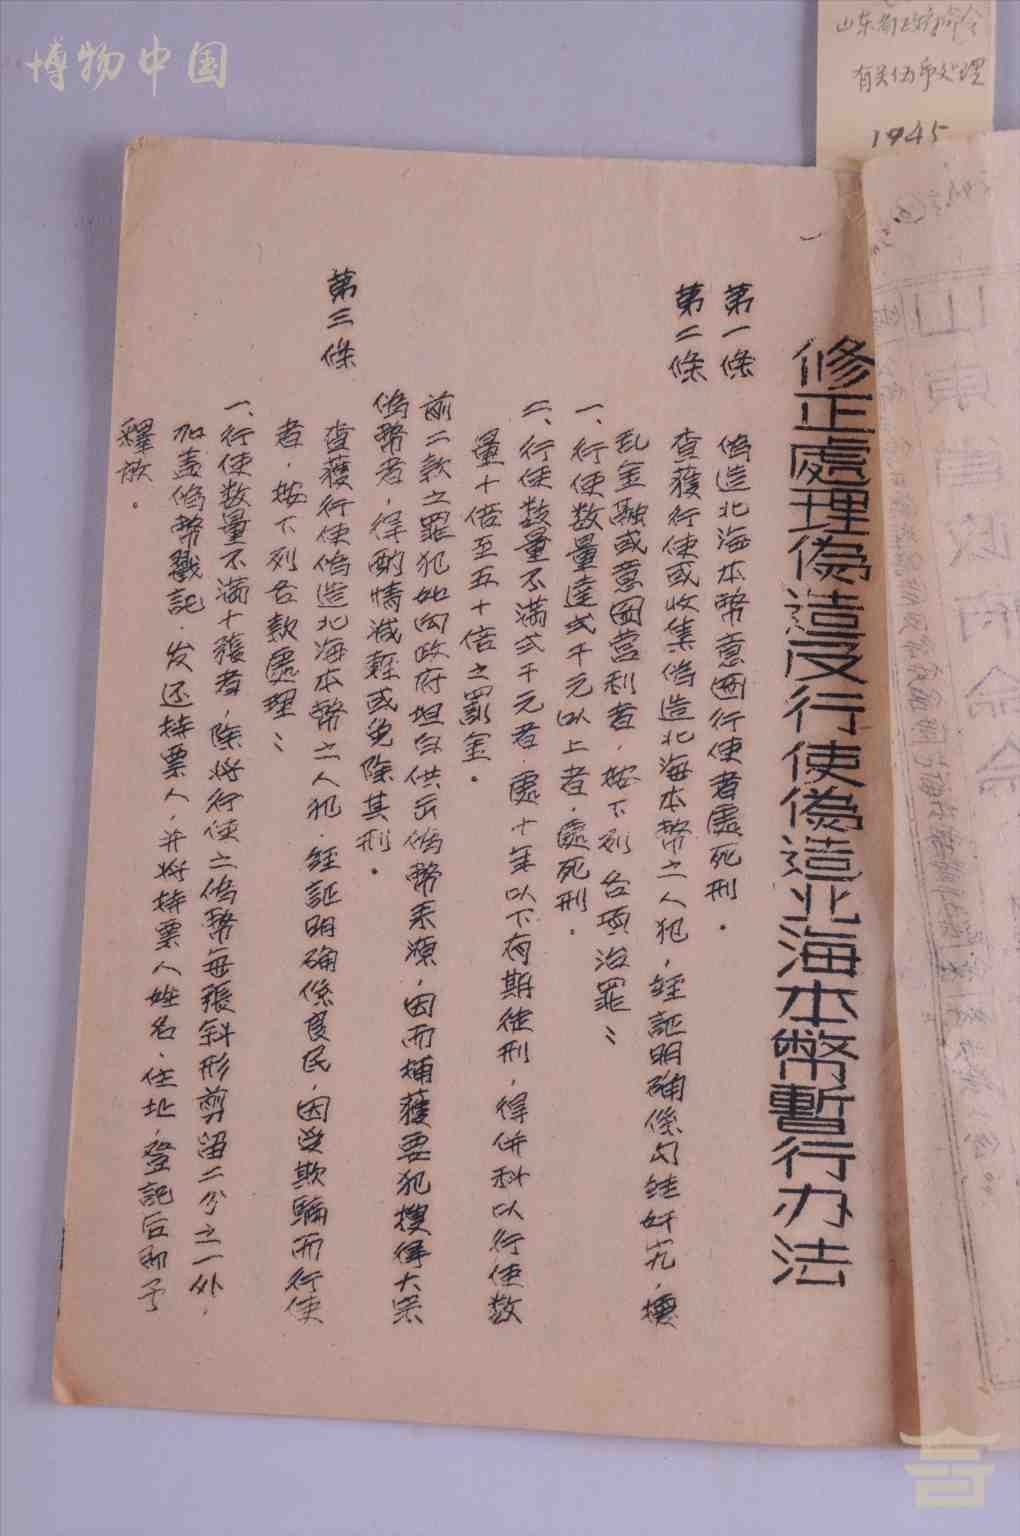 博物中国
山东省政府命令
有关伪币处理
1945
修正處理偽造及行使偽造北海本幣暫行办法
第一条　偽造北海本幣意圖行使者處死刑．
第二條　查獲行使或收集偽造北海本幣之人犯，経証明确係勾結奸宄，擾
乱金融或意圖营利者，按下列各項治罪：
一、行使数量達弍千元以上者，處死刑．
二、行使数量不滿弍千元者，處十年以下有期徒刑，得併科以行使数
量十倍至五十倍之罰金．
前二款之罪犯如向政府坦白供云偽幣来源，因而捕獲要犯搜得大宗
偽幣者，得酌情减輕或免除其刑．
第三條　查獲行使偽造北海本幣之人犯，経証明确係良民，因受欺騙而行使
者，按下列各款處理：
一、行使数量不滿十張者，除将行使之偽幣每張斜形剪留二分之一外，
加盖偽幣戳記，发还持票人，并将持票人姓名、住址，登記后即予
釋放．
山東省政府命令